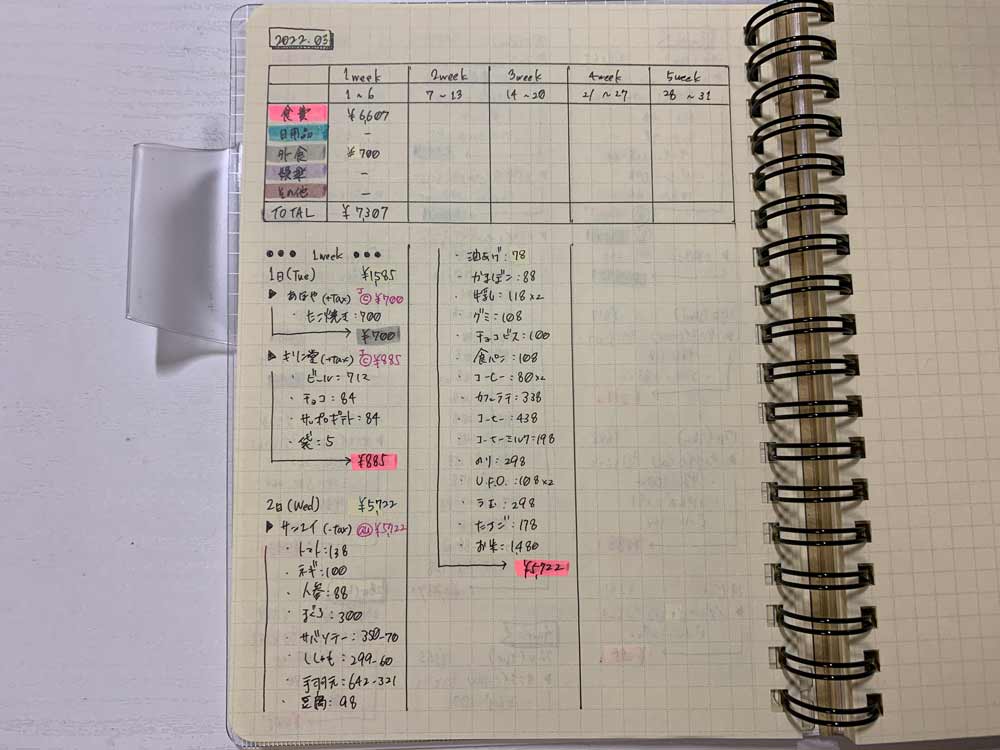 2022.03
1week 2week 3week 4week 5week
1~6 7~13 14~20 21~27 28~31
食費 ¥6,607
日用品 -
外食 ¥700
娯楽 -
その他 -
TOTAL ¥7307
1week
1日(Tue) ¥1,585
▶ あほや(+Tax) J © ¥700
・セン焼き:700
→ ¥700
▶ キリン堂(+Tax) J © ¥885
・ビール:712
・チョコ:84
・サッポロポテト:84
・袋:5
→ ¥885
2日(Wed) ¥5,722
▶ サンエイ(-Tax) au ¥5,722
・トマト:138
・ネギ:100
・人参:88
・300
・サバソテー:350-70
・ししゃも:299-60
・手羽元:642-321
・豆腐:98
・油あげ:78
・かまぼこ:88
・牛乳:118×2
・グミ:108
・チョコビス:100
・食パン:108
・コーヒー:80×2
・カフェラテ:338
・コーヒー:438
・コーヒーミルク:198
・のり:298
・U.F.O.:108×2
・298
・たまご:178
・お米:1480
→ ¥5,722